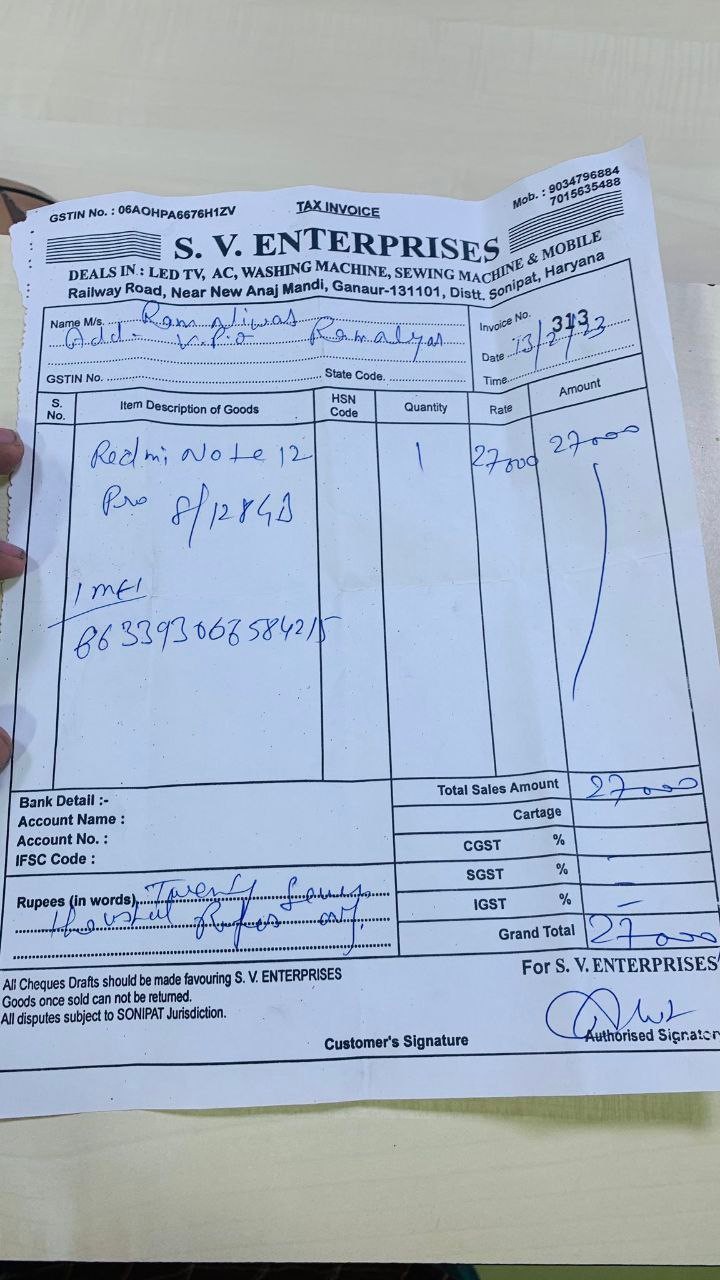 GSTIN No. : 06AOHPA6676H1ZV
TAX INVOICE
Mob. : 9034796884
7015635488
S. V. ENTERPRISES
DEALS IN : LED TV, AC, WASHING MACHINE, SEWING MACHINE & MOBILE
Railway Road, Near New Anaj Mandi, Ganaur-131101, Distt. Sonipat, Haryana
Name M/s. Ram Niwas
Add - V.P.O
Invoice No. 313
Date 13/2/23
GSTIN No. State Code. Time
S. No. Item Description of Goods HSN Code Quantity Rate Amount
Redmi Note 12 1 27000 27000
Pro 8/128GB
IMEI
863393066584215
Bank Detail :-
Account Name :
Account No. :
IFSC Code :
Total Sales Amount 27000
Cartage
CGST %
SGST % -
IGST % -
Grand Total 27000
Rupees (in words) Twenty
Rupees only.
All Cheques Drafts should be made favouring S. V. ENTERPRISES
Goods once sold can not be returned.
All disputes subject to SONIPAT Jurisdiction.
For S. V. ENTERPRISES
Customer's Signature
Authorised Signator